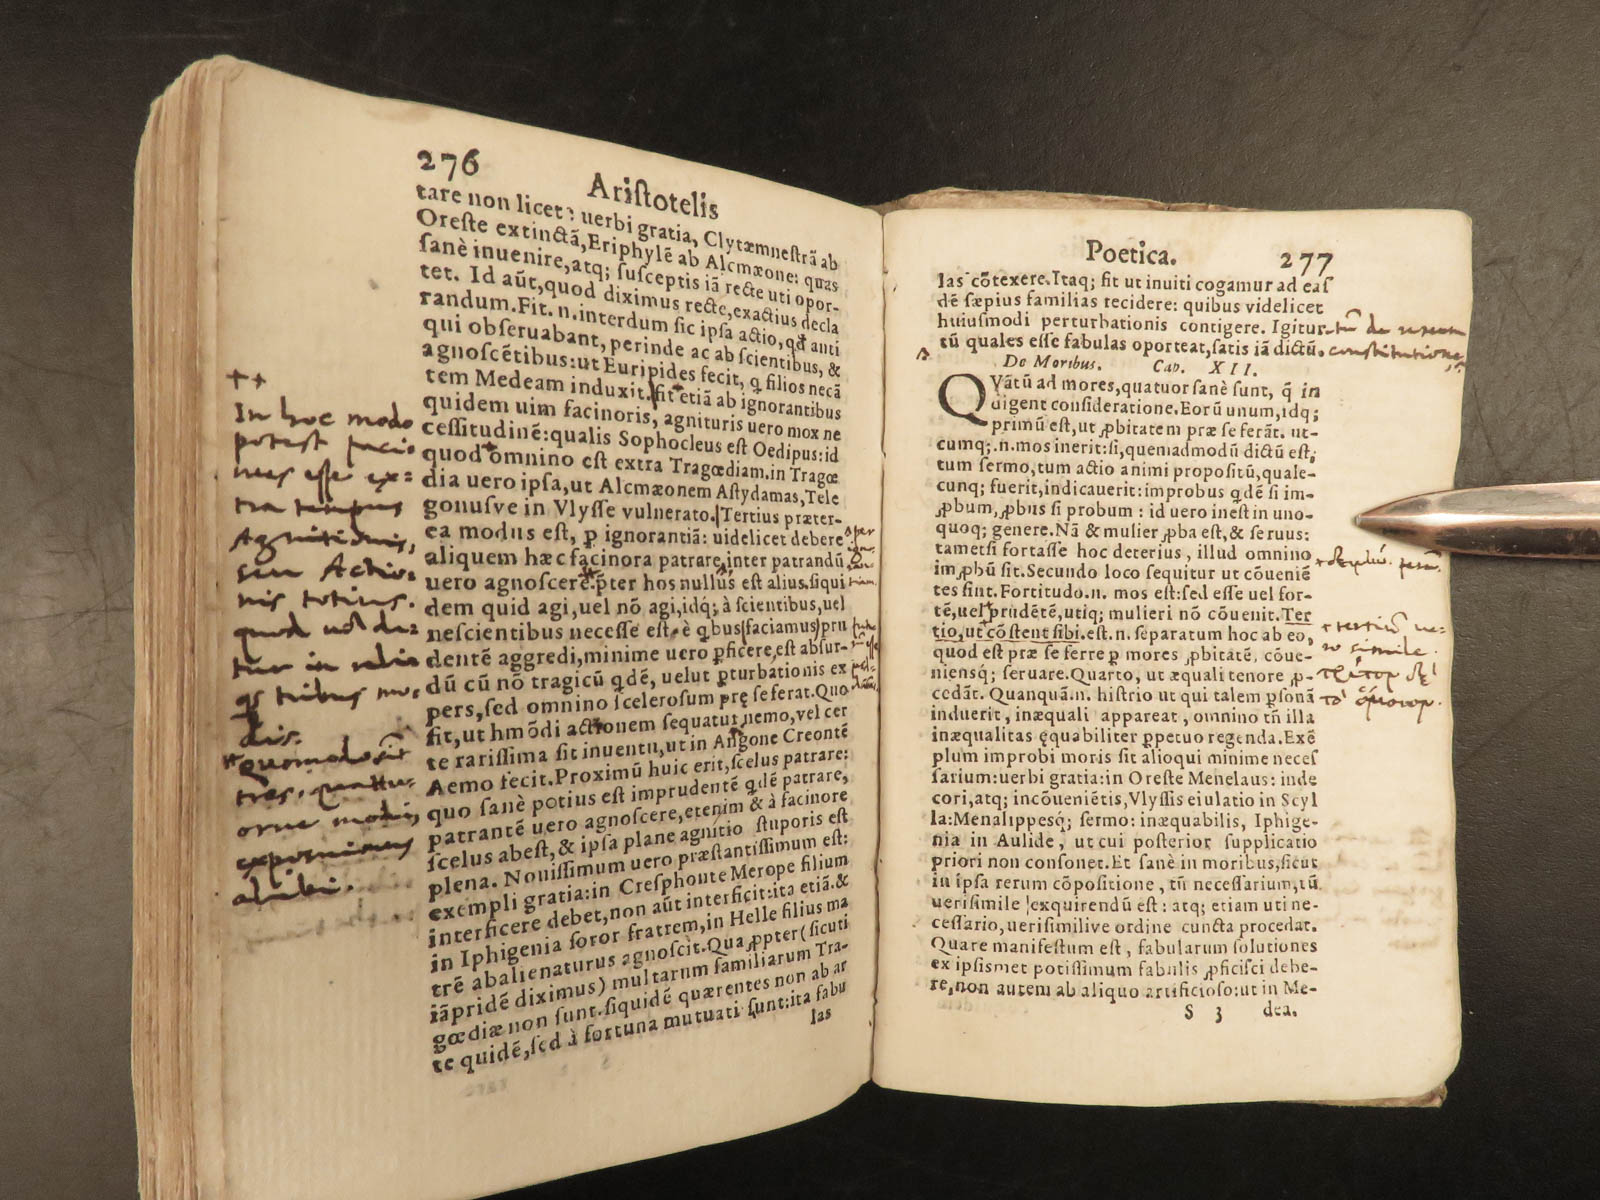 276
Aristotelis
tare non licet: uerbi gratia, Clytæmnestrã ab
Oreste extinctã, Eriphylẽ ab Alcmæone: quas
sanè inuenire, atq; susceptis iã recte uti opor-
tet. Id aũt, quod diximus recte, exactius decla
randum. Fit .n. interdum sic ipsa actio, qđ anti
qui obseruabant, perinde ac ab scientibus, &
agnoscẽtibus: ut Euripides fecit, q filios necã
tem Medeam induxit. fit etiã ab ignorantibus
quidem uim facinoris, agnituris uero mox ne
cessitudinẽ: qualis Sophocleus est Oedipus: id
quod omnino est extra Tragœdiam. in Tragœ
dia uero ipsa, ut Alcmæonem Astydamas, Tele
gonusve in Vlysse vulnerato. Tertius præter-
ea modus est, ꝑ ignorantiã: uidelicet debere
aliquem hæc facinora patrare, inter patrandũ
uero agnoscere. p̃ter hos nullus est alius. siqui
dem quid agi, uel nõ agi, idq; à scientibus, uel
nescientibus necesse est. è qbus (faciamus) pru
dentẽ aggredi, minime uero ꝑficere, est absur-
dũ cũ nõ tragicũ qdẽ, uelut ꝑturbationis ex
pers, sed omnino scelerosum prę se ferat. Quo
fit, ut hmõdi actionem sequatur nemo, vel cer
te rarissima sit inuentu, ut in Antigone Creontẽ
Aemo fecit. Proximũ huic erit, scelus patrare:
quo sanè potius est imprudentẽ qdẽ patrare,
patrantẽ uero agnoscere, etenim & à facinore
scelus abest, & ipsa plane agnitio stuporis est
plena. Nouissimum uero præstantissimum est:
exempli gratia: in Cresphonte Merope filium
interficere debet, non aũt interficit: ita etiã. &
in Iphigenia soror fratrem, in Helle filius ma
trẽ abalienaturus agnoscit. Quaꝓpter (sicuti
iãpridẽ diximus) multarum familiarum Tra-
gœdiæ non sunt. siquidẽ quærentes non ab ar
te quidẽ, sed à fortuna mutuati sunt: ita fabu
las
In hoc modo
potest faci-
nus esse ex-
tra tempus
Agnitionis,
seu Actio-
nis totius.
Quomodo sit
alibi.
Poetica.
277
las cõtexere. Itaq; fit ut inuiti cogamur ad eas
dẽ sæpius familias recidere: quibus videlicet
huiusmodi perturbationis contigere. Igitur
tũ quales esse fabulas oporteat, satis iã dictũ.
constitutione
De Moribus. Cap. XII.
QVãtũ ad mores, quatuor sanè sunt, q̃ in
digent consideratione. Eorũ unum, idq;
primũ est, ut ꝓbitatem præ se ferãt. ut-
cumq; .n. mos inerit: si, quemadmodũ dictũ est,
tum sermo, tum actio animi propositũ, quale-
cunq; fuerit, indicauerit: improbus qdẽ si im-
ꝓbum, ꝓbus si probum: id uero inest in uno-
quoq; genere. Nã & mulier ꝓba est, & seruus:
tametsi fortasse hoc deterius, illud omnino
imꝓbũ sit. Secundo loco sequitur ut cõueniẽ
tes sint. Fortitudo .n. mos est: sed esse uel for-
tẽ, uel prudẽtẽ, utiq; mulieri nõ cõuenit. Ter
tio, ut cõstent sibi. est .n. separatum hoc ab eo,
quod est præ se ferre ꝑ mores ꝓbitatẽ, cõue-
niensq; seruare. Quarto, ut æquali tenore ꝓ-
cedãt. Quanquã .n. histrio ut qui talem ꝑsonã
induerit, inæquali appareat, omnino tñ illa
inæqualitas ęquabiliter ꝑpetuo regenda. Exẽ
plum improbi moris sit alioqui minime neces
sarium: uerbi gratia: in Oreste Menelaus: inde
cori, atq; incõueniẽtis, Vlyssis eiulatio in Scyl
la: Menalippesq; sermo: inæquabilis, Iphige-
nia in Aulide, ut cui posterior supplicatio
priori non consonet. Et sanè in moribus, sicut
in ipsa rerum cõpositione, tũ necessarium, tũ
uerisimile exquirendũ est: atq; etiam uti ne-
cessario, uerisimilive ordine cuncta procedat.
Quare manifestum est, fabularum solutiones
ex ipsismet potissimum fabulis ꝓficisci debe-
re, non autem ab aliquo artificioso: ut in Me-
S 3 dea.
tertium ve-
ro simile.